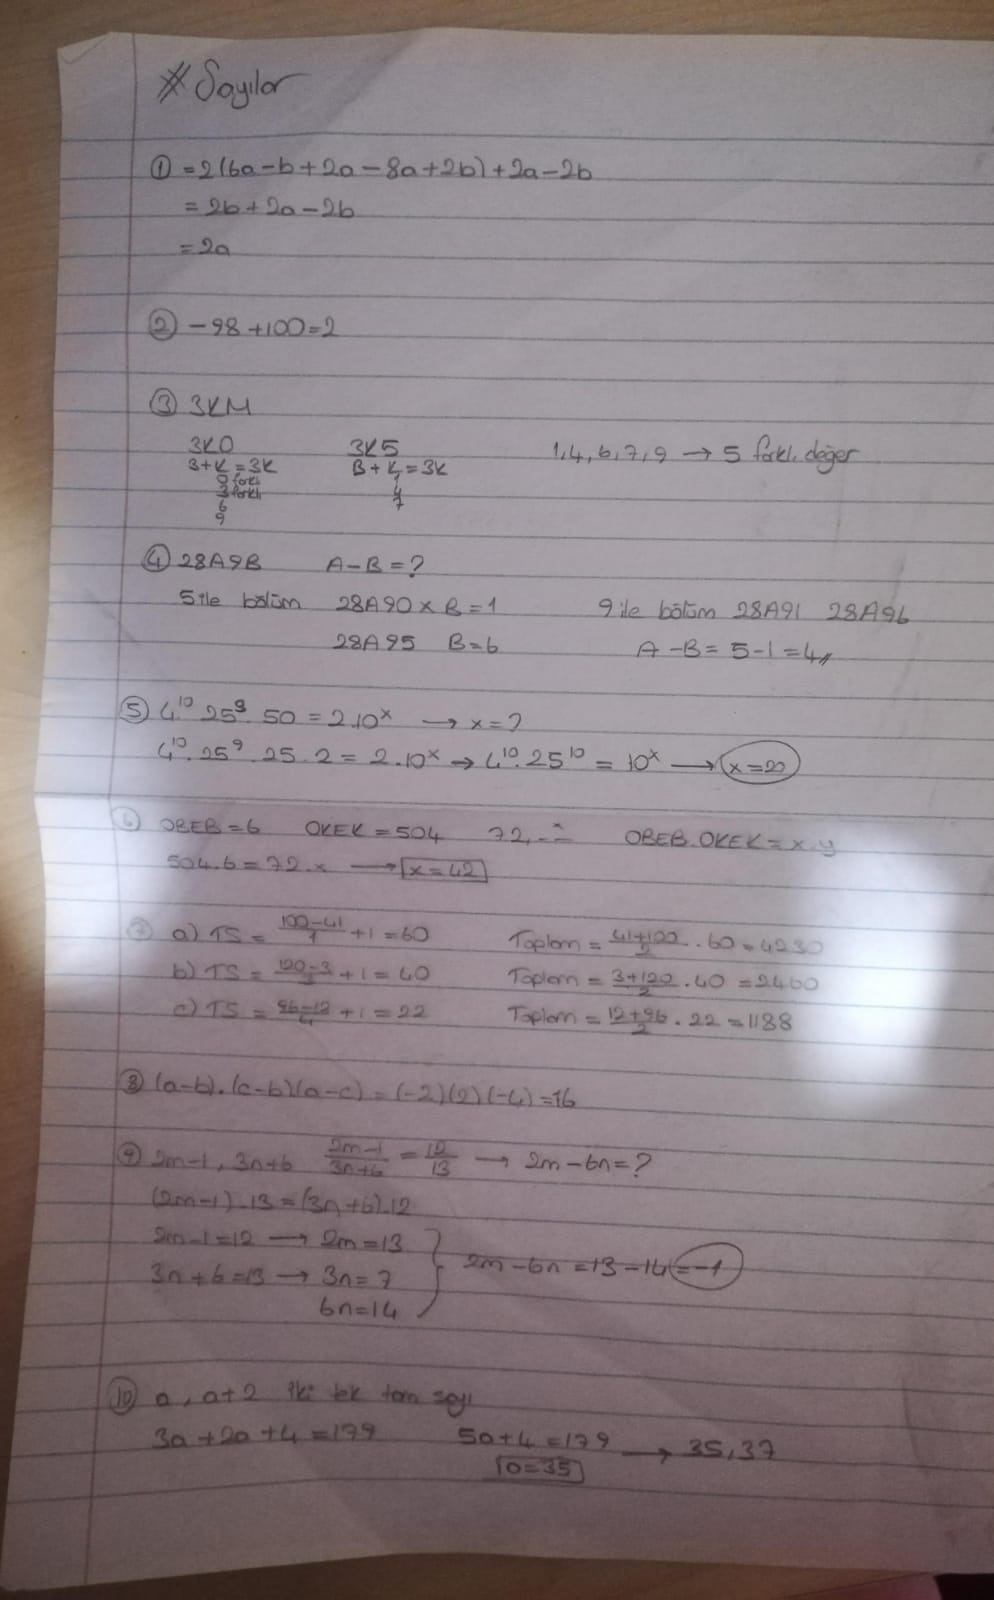 # Sayılar
① = 2(6a-b+2a-8a+2b)+2a-2b
= 2b+2a-2b
= 2a
② -98+100=2
③ 3KM
3K0 3K5 1,4,6,7,9 → 5 farklı değer
3+K=3k 8+K=3k
0 farklı 1
3 farklı 4
6 7
9
④ 28A9B A-B=?
5 ile bölüm 28A90 x B=1 9 ile bölüm 28A91 28A96
28A95 B=6 A-B = 5-1=4//
⑤ 4¹⁰ 25⁹. 50 = 2.10ˣ → x=?
4¹⁰. 25⁹. 25. 2 = 2.10ˣ → 4¹⁰. 25¹⁰ = 10ˣ → x=20
⑥ OBEB=6 OKEK=504 72, x OBEB.OKEK=x.y
504.6=72.x → x=42
⑦ a) TS = 100-41/1 +1=60 Toplam = 41+100/2 . 60=4230
b) TS = 120-3/3 +1=40 Toplam = 3+120/2 . 40 =2460
c) TS = 96-12/4 +1=22 Toplam = 12+96/2 . 22 =1188
⑧ (a-b).(c-b)(a-c) = (-2)(2)(-4)=16
⑨ 2m-1, 3n+6 2m-1/3n+6 = 12/13 → 2m-6n=?
(2m-1).13=(3n+6).12
2m-1=12 → 2m=13
3n+6=13 → 3n=7 } 2m-6n=13-14=-1
6n=14
⑩ a, a+2 iki tek tam sayı
3a+2a+4=179 5a+4=179 → 35,37
a=35